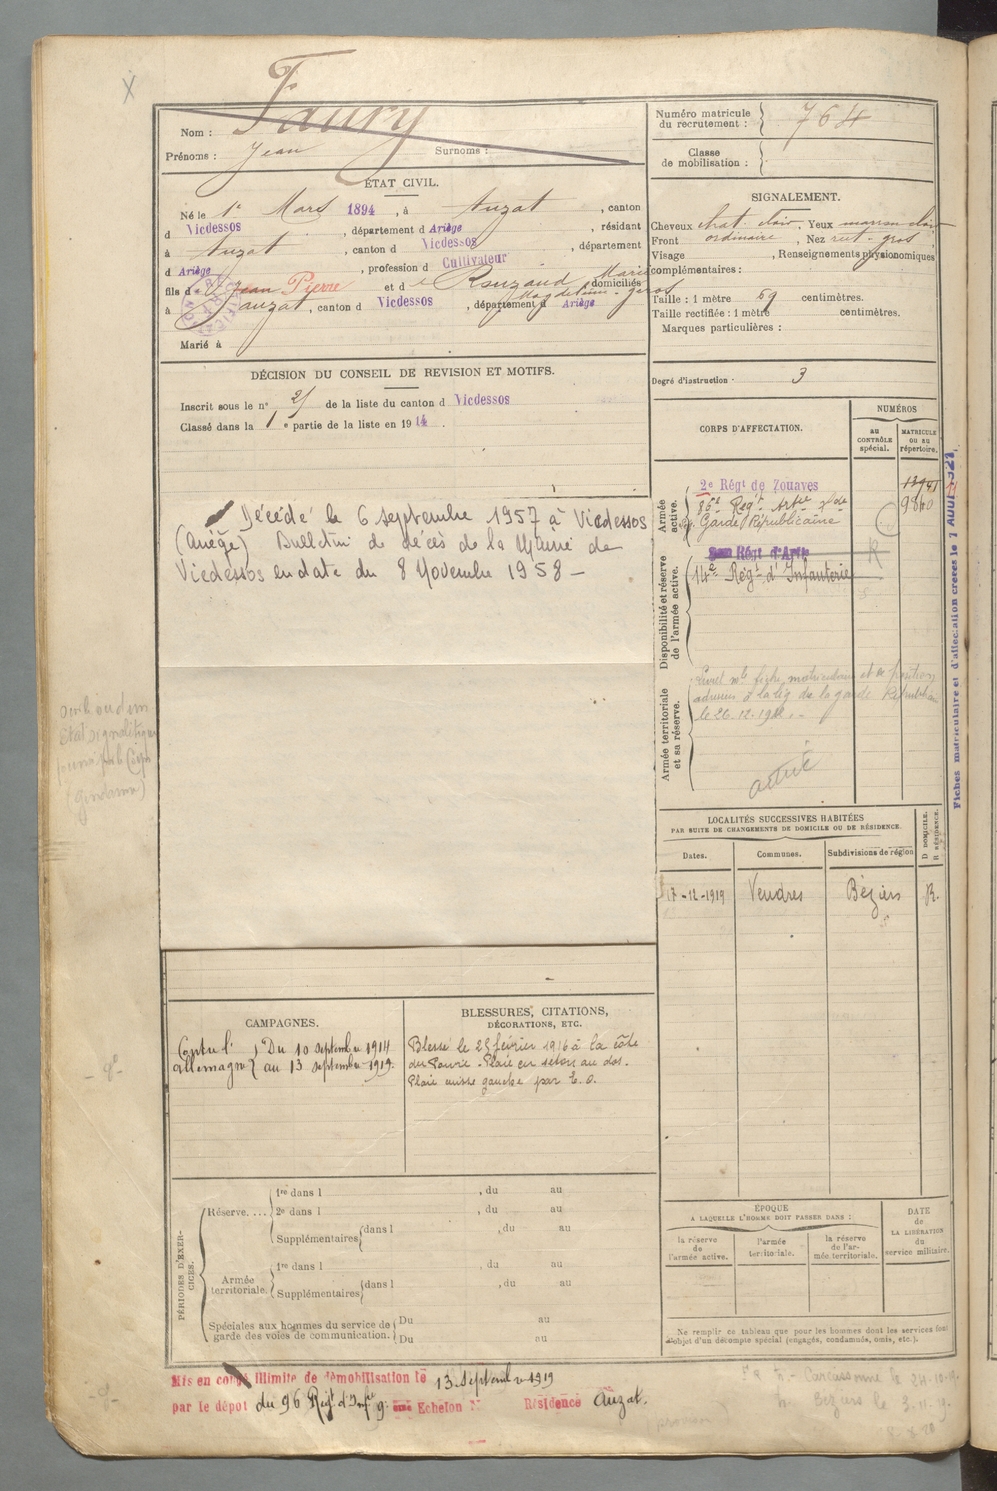 X
Nom : Faury
Prénoms : Jean Surnoms :
Numéro matricule du recrutement : 764
Classe de mobilisation :
ÉTAT CIVIL.
Né le 1er Mars 1894, à Auzat, canton
d Vicdessos, département d Ariège, résidant
à Auzat, canton d Vicdessos, département
d Ariège, profession d Cultivateur
fils d e Jean Pierre et d e Rouzaud Marie Magdeleine domiciliés
à Auzat, canton d Vicdessos, département d Ariège
Marié à
SIGNALEMENT.
Cheveux chat. clair, Yeux marron clair
Front ordinaire, Nez rect. gros
Visage , Renseignements physionomiques
complémentaires :
Taille : 1 mètre 69 centimètres.
Taille rectifiée : 1 mètre centimètres.
Marques particulières :
Degré d'instruction · 3
DÉCISION DU CONSEIL DE REVISION ET MOTIFS.
Inscrit sous le n° 21 de la liste du canton d Vicdessos
Classé dans la 1 e partie de la liste en 1914.
Décédé le 6 septembre 1957 à Vicdessos
(Ariège) Bulletin de décès de la Mairie de
Vicdessos en date du 8 Novembre 1958 –
CORPS D'AFFECTATION.
NUMÉROS
AU CONTRÔLE spécial.
MATRICULE OU AU répertoire.
Armée active.
2e Régt de Zouaves
86e Régt Artie
Garde Républicaine
Disponibilité et réserve de l'armée active.
Régt d'Artie
14e Régt d'Infanterie
Armée territoriale et sa réserve.
le 26.12.19
active
Fiches matriculaire et d'affectation créées le 7 AOUT 1921
LOCALITÉS SUCCESSIVES HABITÉES
PAR SUITE DE CHANGEMENTS DE DOMICILE OU DE RÉSIDENCE.
Dates. Communes. Subdivisions de région D DOMICILE. R RÉSIDENCE.
17-12-1919 Vendres Béziers R.
CAMPAGNES.
Contre l' Allemagne } Du 10 septembre 1914
au 13 septembre 1919.
BLESSURES, CITATIONS,
DÉCORATIONS, ETC.
Blessé le 25 février 1916 à la côte
du Poivre - Plaie en séton au dos.
Plaie cuisse gauche par E.O.
PÉRIODES D'EXERCICES.
Réserve....
1re dans l , du au
2e dans l , du au
Supplémentaires {dans l , du au
Armée territoriale.
1re dans l , du au
Supplémentaires {dans l , du au
Spéciales aux hommes du service de garde des voies de communication.
Du au
Du au
ÉPOQUE
A LAQUELLE L'HOMME DOIT PASSER DANS :
la réserve de l'armée active.
l'armée territoriale.
la réserve de l'armée territoriale.
DATE DE LA LIBÉRATION du service militaire.
Ne remplir ce tableau que pour les hommes dont les services font
l'objet d'un décompte spécial (engagés, condamnés, omis, etc.).
Mis en congé illimité de démobilisation le 13 septembre 1919
par le dépôt du 96 Régt d'Infie 9. Echelon N° Résidence Auzat.
Carcassonne le 24.10.19.
Béziers le 3.11.19.